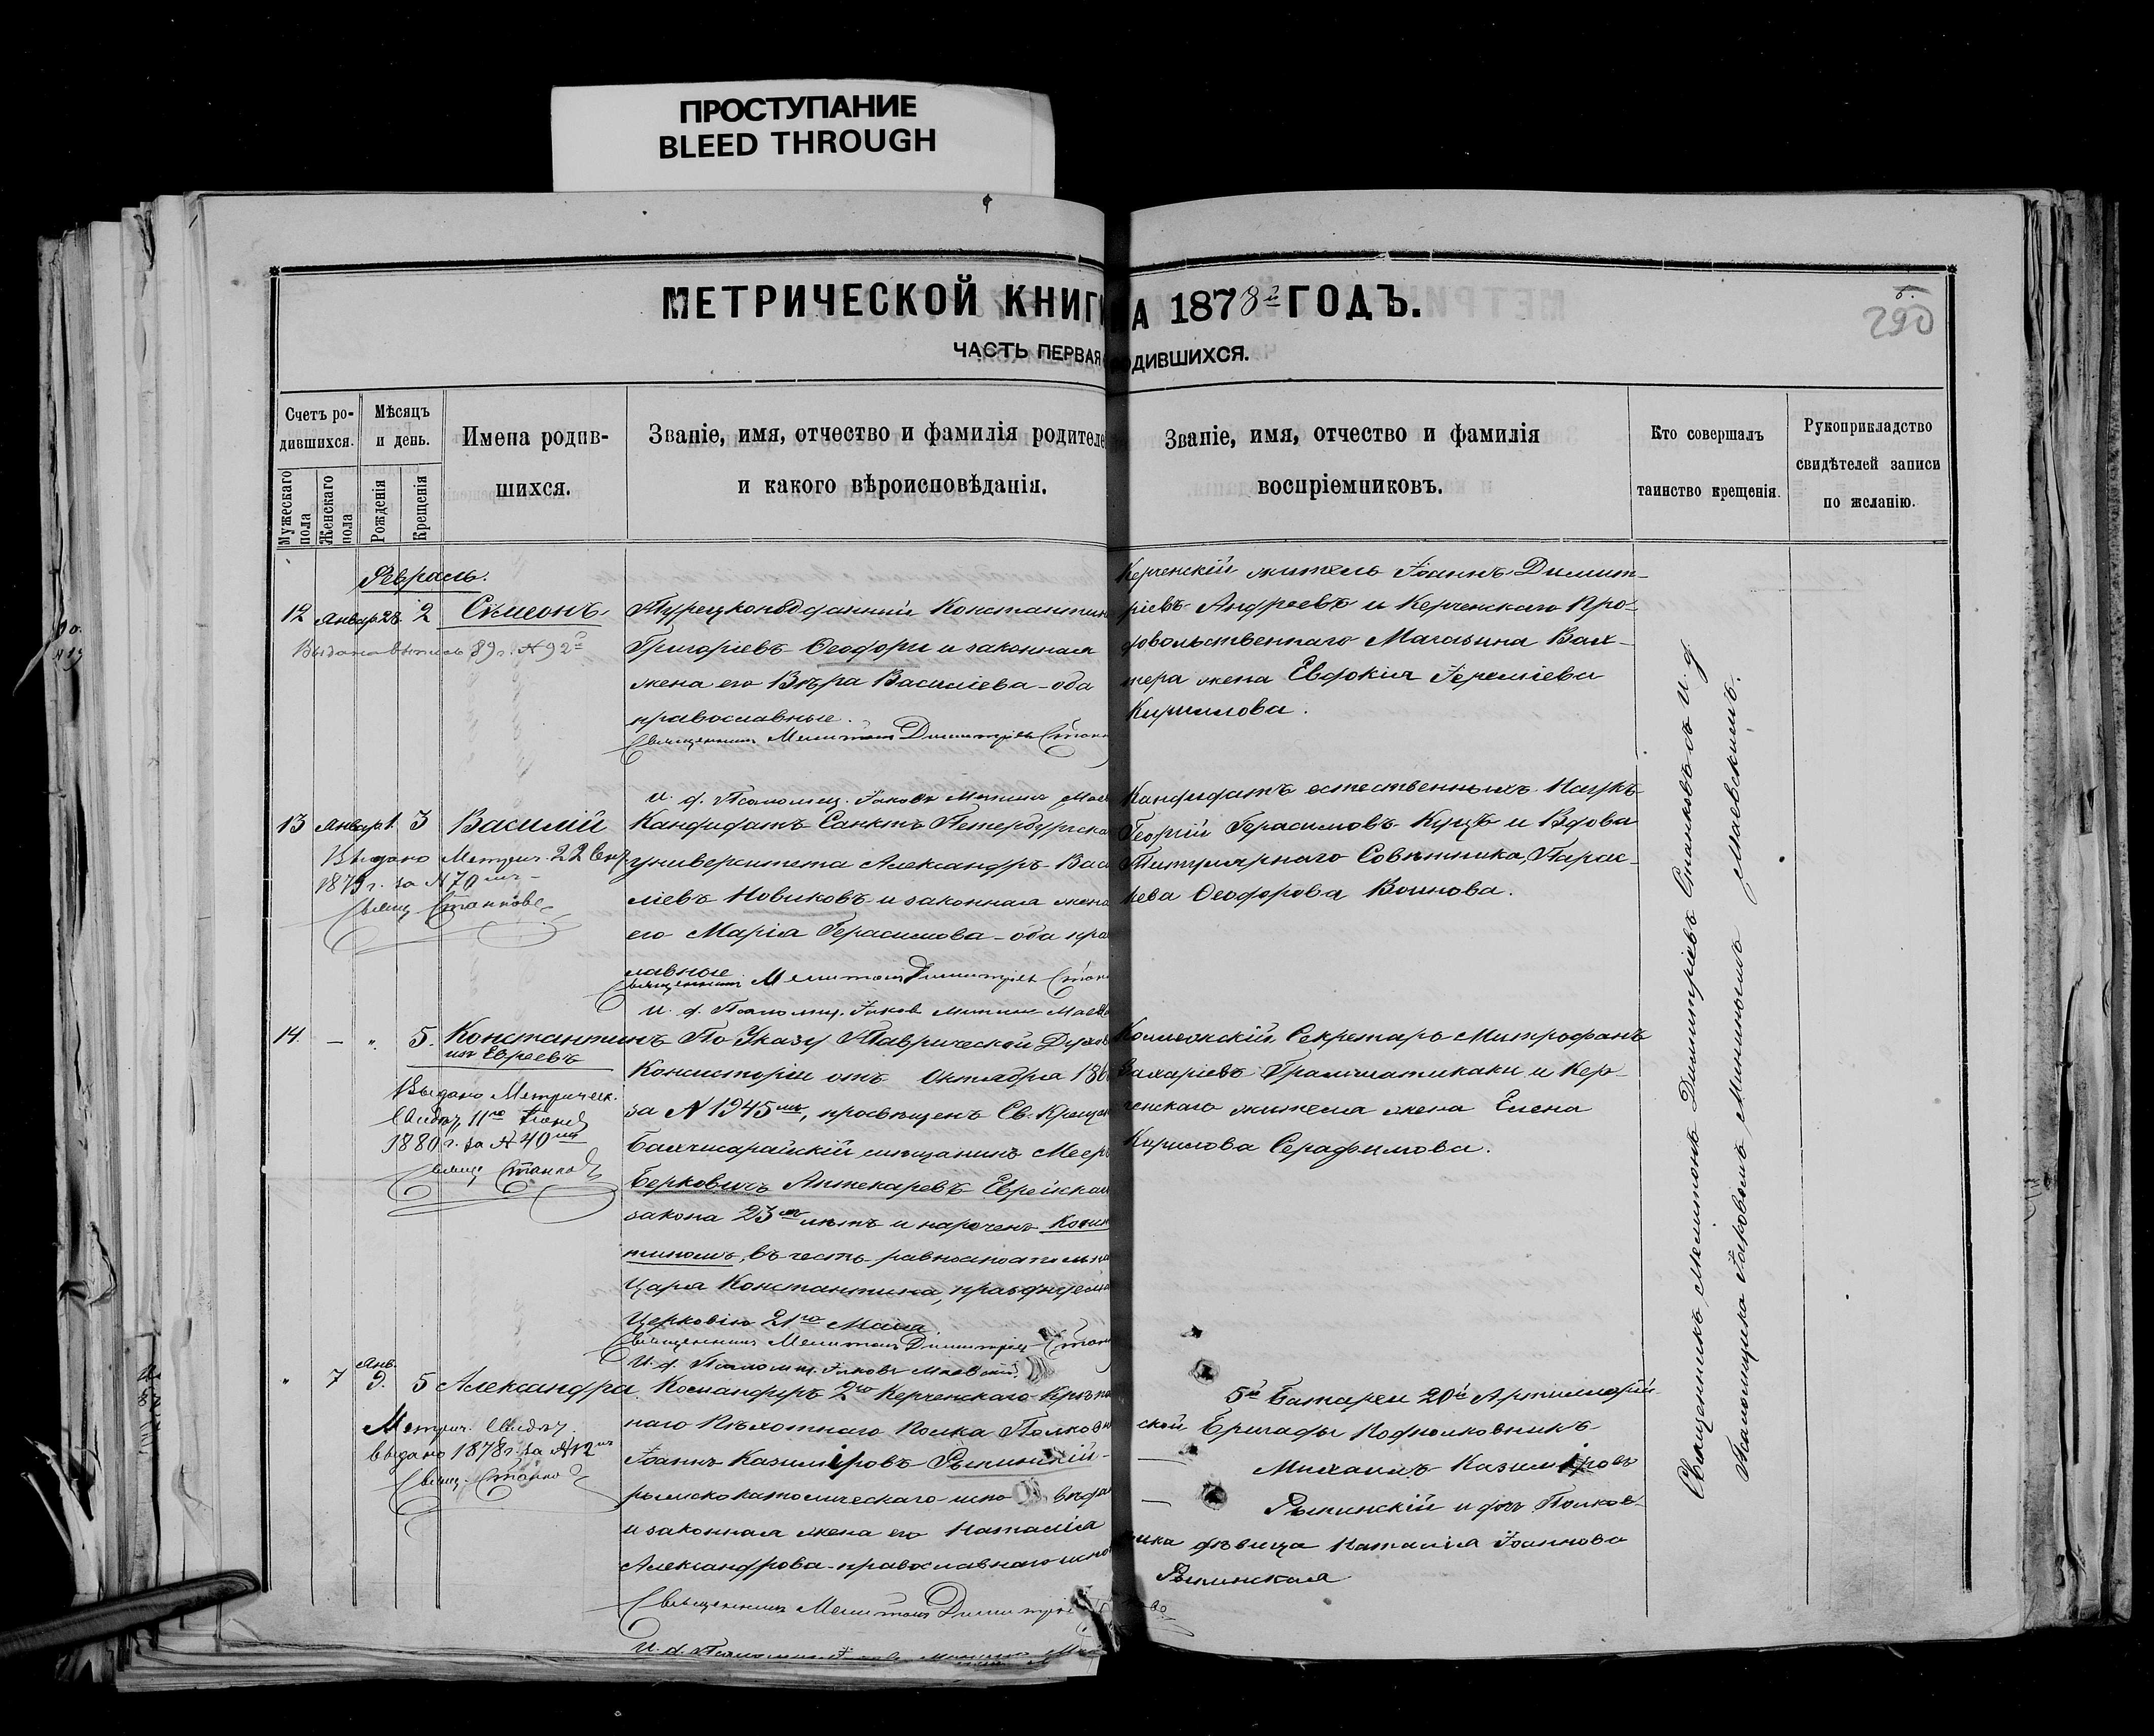 ПРОСТУПАНИЕ
BLEED THROUGH
МЕТРИЧЕСКОЙ КНИГ
А 1878й ГОДЪ.
ЧАСТЬ ПЕРВАЯ
ОДИВШИХСЯ.
5.
290
Счетъ ро-
дившихся.
Мужескаго пола
Женскаго пола
Мѣсяцъ
и день.
Рожденія
Крещенія
Имена родив-
шихся.
Званіе, имя, отчество и фамилія родителе
и какого вѣроисповѣданія.
Званіе, имя, отчество и фамилія
воспріемниковъ.
Кто совершалъ
таинство крещенія.
Рукоприкладство
свидѣтелей записи
по желанію.
Февраль.
12 Январ. 28. 2 Сѵмеонъ.
Выдана выпись 89 г. № 92й
Турецкоподданный Константин
Григоріевъ Ѳеодори и законная
жена его Вѣра Василіева - оба
православные.
Священникъ Мелитонъ Димитріевъ Станк
И. д. Псаломщ. Іаковъ Мининъ Маев
Керченскій житель Іоаннъ Димит-
ріевъ Андреевъ и Керченскаго Про-
довольственнаго Магазина Вах-
тера жена Евдокія Іереміева
Кириллова.
13 Январ. 1. 3 Василій
Выдано Метрич. 22 Сент.
1879 г. за № 70мъ
Свящ. Станковъ
Кандидатъ Санктъ Петербургска
университета Александръ Васи
ліевъ Новиковъ и законная жена
его Марія Герасимова - оба пра
лавные.
Священникъ Мелитонъ Димитріевъ Станк
И. д. Псаломщ. Іаковъ Мининъ Маев
Кандидатъ естественныхъ Наукъ
Георгій Герасимовъ Куцъ и Вдова
Титулярнаго Совѣтника, Парас-
кева Ѳеодорова Воинова.
14. — „ 5. Константинъ
изъ Евреевъ
Выдано Метрическ.
Свидѣт. 11го Іюня
1880 г. за № 40мъ
Свящ. Станковъ
По Указу Таврической Духов
Консисторіи отъ Октября 18
за № 1945мъ, просвѣщенъ Св. Крещен
Бахчисарайскій мѣщанинъ Меер
Берковичъ Аптекаревъ Еврейскаг
закона 23хъ лѣтъ и нареченъ Конст
тиномъ, въ честь равноапостольна
Царя Константина, празднуема
Церковію 21го Маія.
Священникъ Мелитонъ Димитріевъ Станк
И. д. Псаломщ. Іаковъ Маевскій.
Коллежскій Секретарь Митрофанъ
Захаріевъ Грамматикаки и Кер-
ченскаго жителя жена Елена
Кирилова Серафимова.
„ 7 Янв. 9. 5 Александра
Метрич. Свидѣт.
выдано 1878 г. за № 12мъ
Свящ. Станковъ
Командиръ 2го Керченскаго Крѣпо
наго Пѣхотнаго Полка Полковн
Іоаннъ Казиміровъ Рыпинскій -
римскокатолическаго испо вѣда
и законная жена его Наталія
Александрова - православнаго испо
Священникъ Мелитонъ Димитріе
И. д. Псаломщ.
5й Батареи 20й Артиллерій-
ской Бригады Подполковникъ
Михаилъ Казиміровъ
Рыпинскій и дочь Полков-
ника дѣвица Наталія Іоаннова
Рыпинская
Священникъ Мелитонъ Димитріевъ Станковъ съ И. д.
Псаломщика Іаковомъ Мининымъ Маевскимъ.